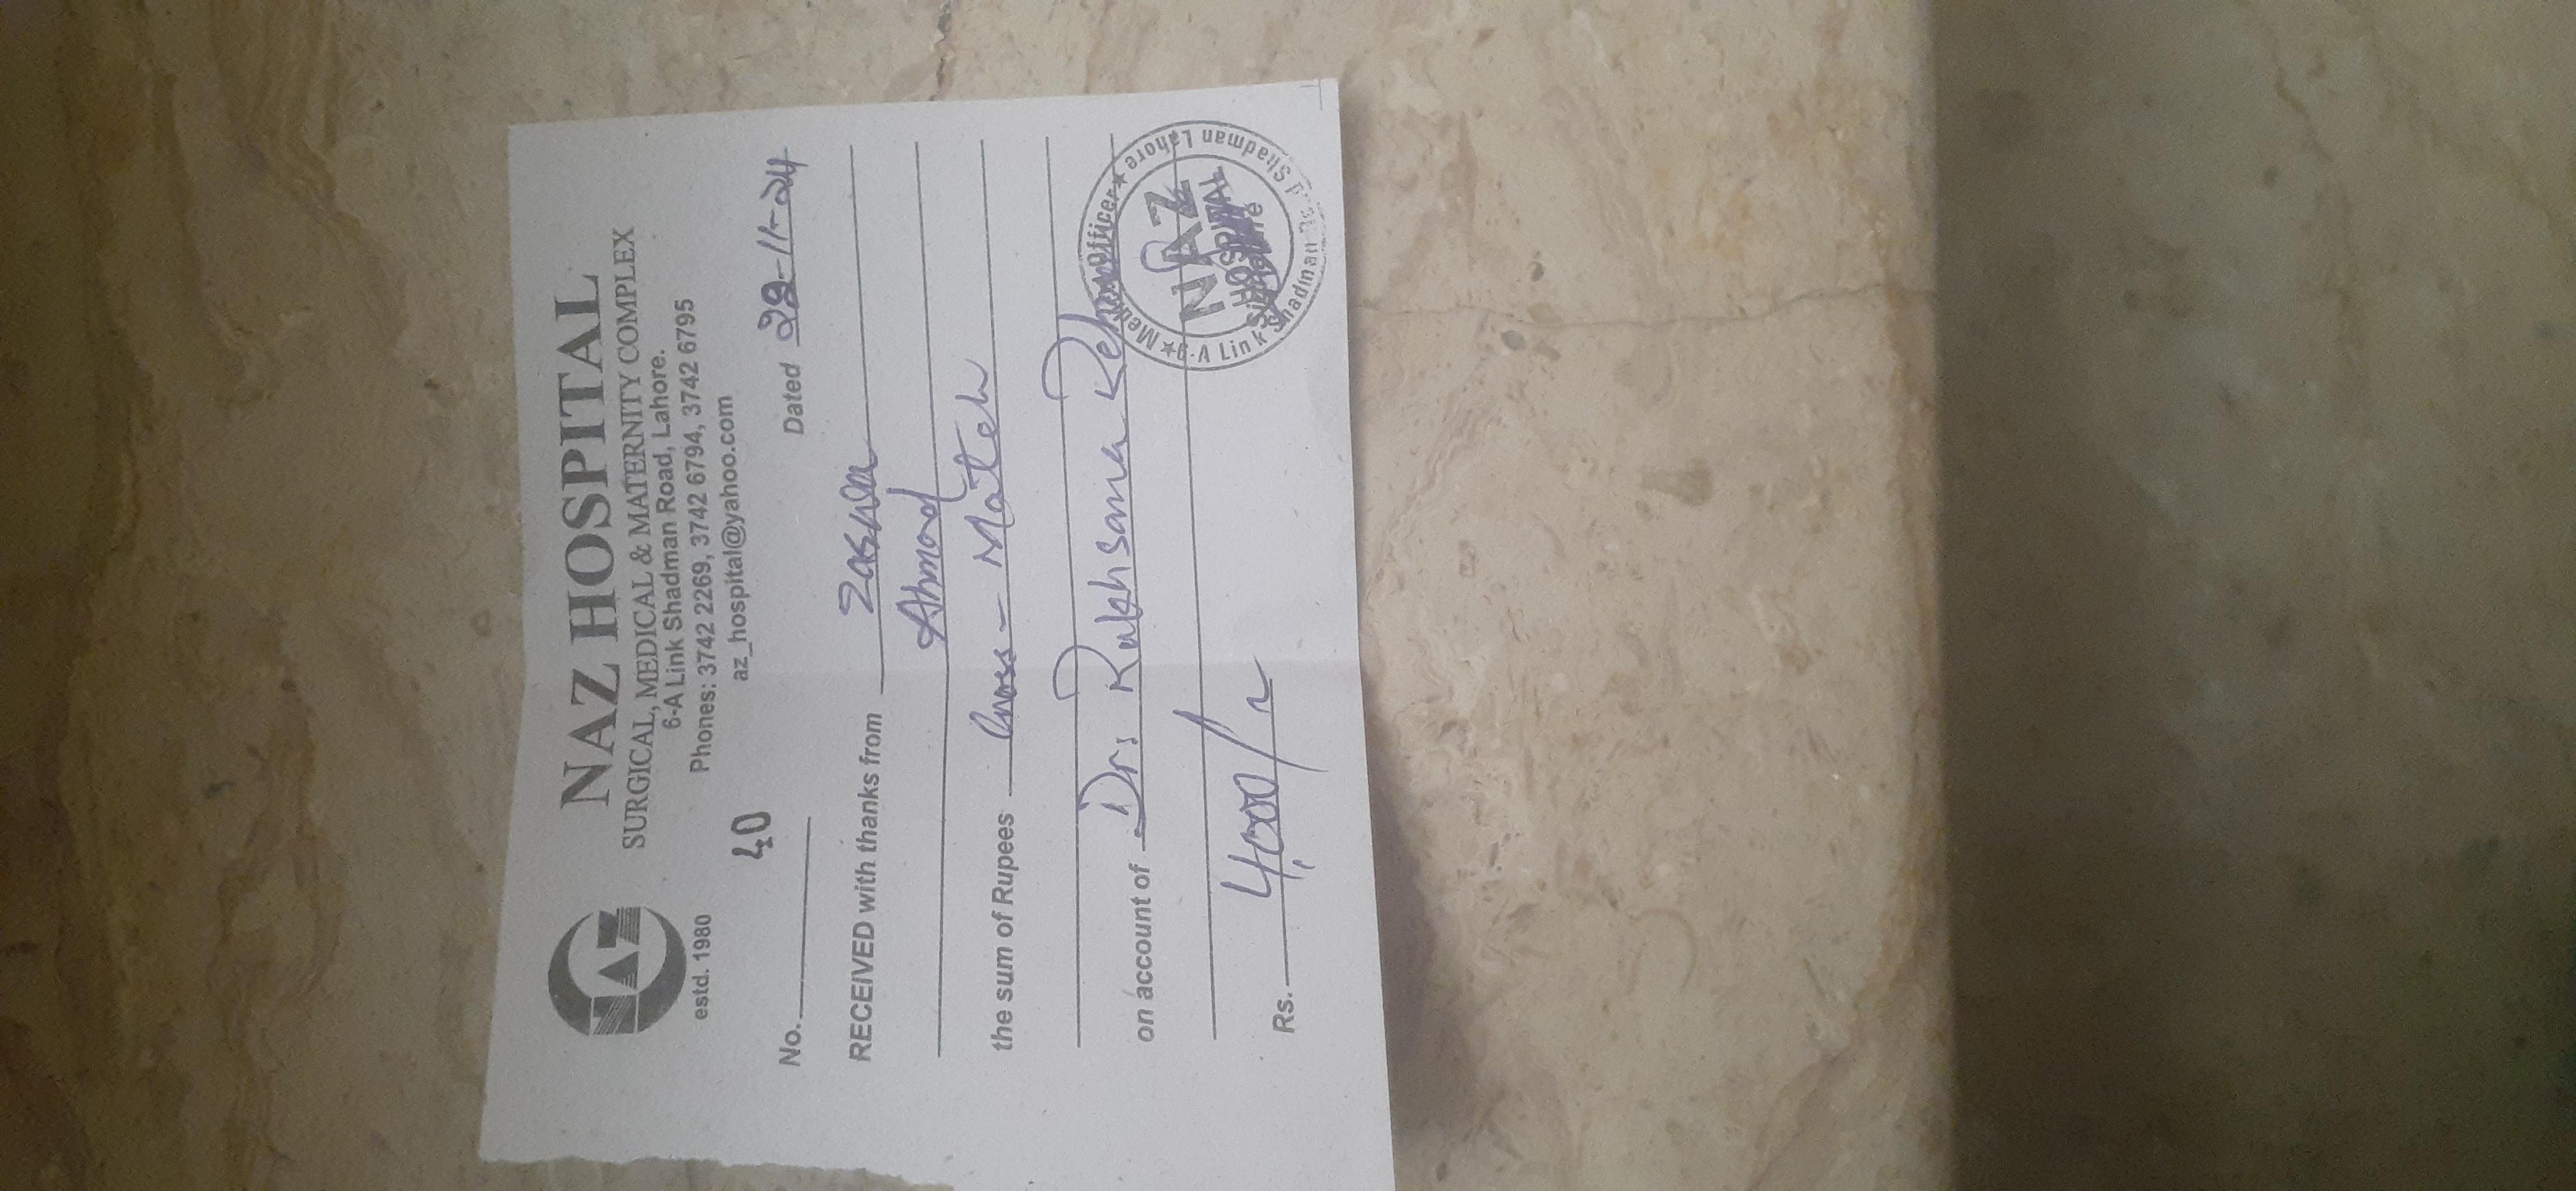 NAZ
estd. 1980
NAZ HOSPITAL
SURGICAL, MEDICAL & MATERNITY COMPLEX
6-A Link Shadman Road, Lahore.
Phones: 3742 2269, 3742 6794, 3742 6795
az_hospital@yahoo.com
No. 40
Dated 22-11-24
RECEIVED with thanks from
Ahmad
the sum of Rupees Cross - Match
on account of Dr. Rukhsana
Rs. 4,000/
Medical Officer ★ Lahore
NAZ
HOSPITAL
Signature
Link Shadman Shadman